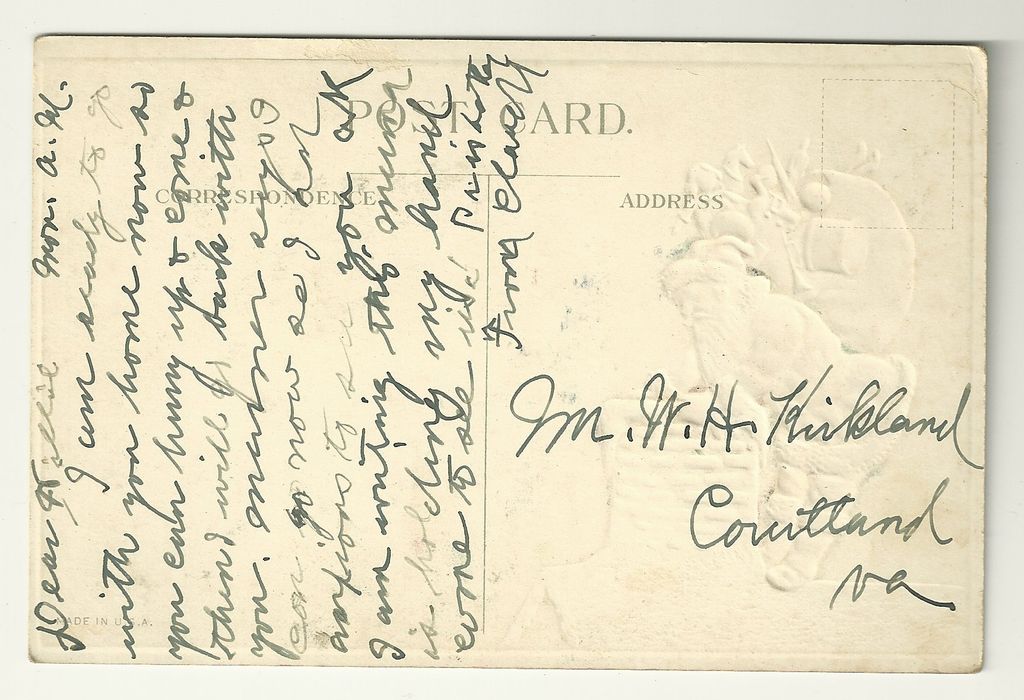 POST CARD.
CORRESPONDENCE
ADDRESS
MADE IN U.S.A.
Dear Mon. a.M.
I am ready to go
with you home now so
you can hurry up & come &
then I will go back with
you. says I
can go now so I
anxious to see you
I am writing this mama
is holding my hand
come to see
From
M. W. H. Kirkland
Courtland
Va